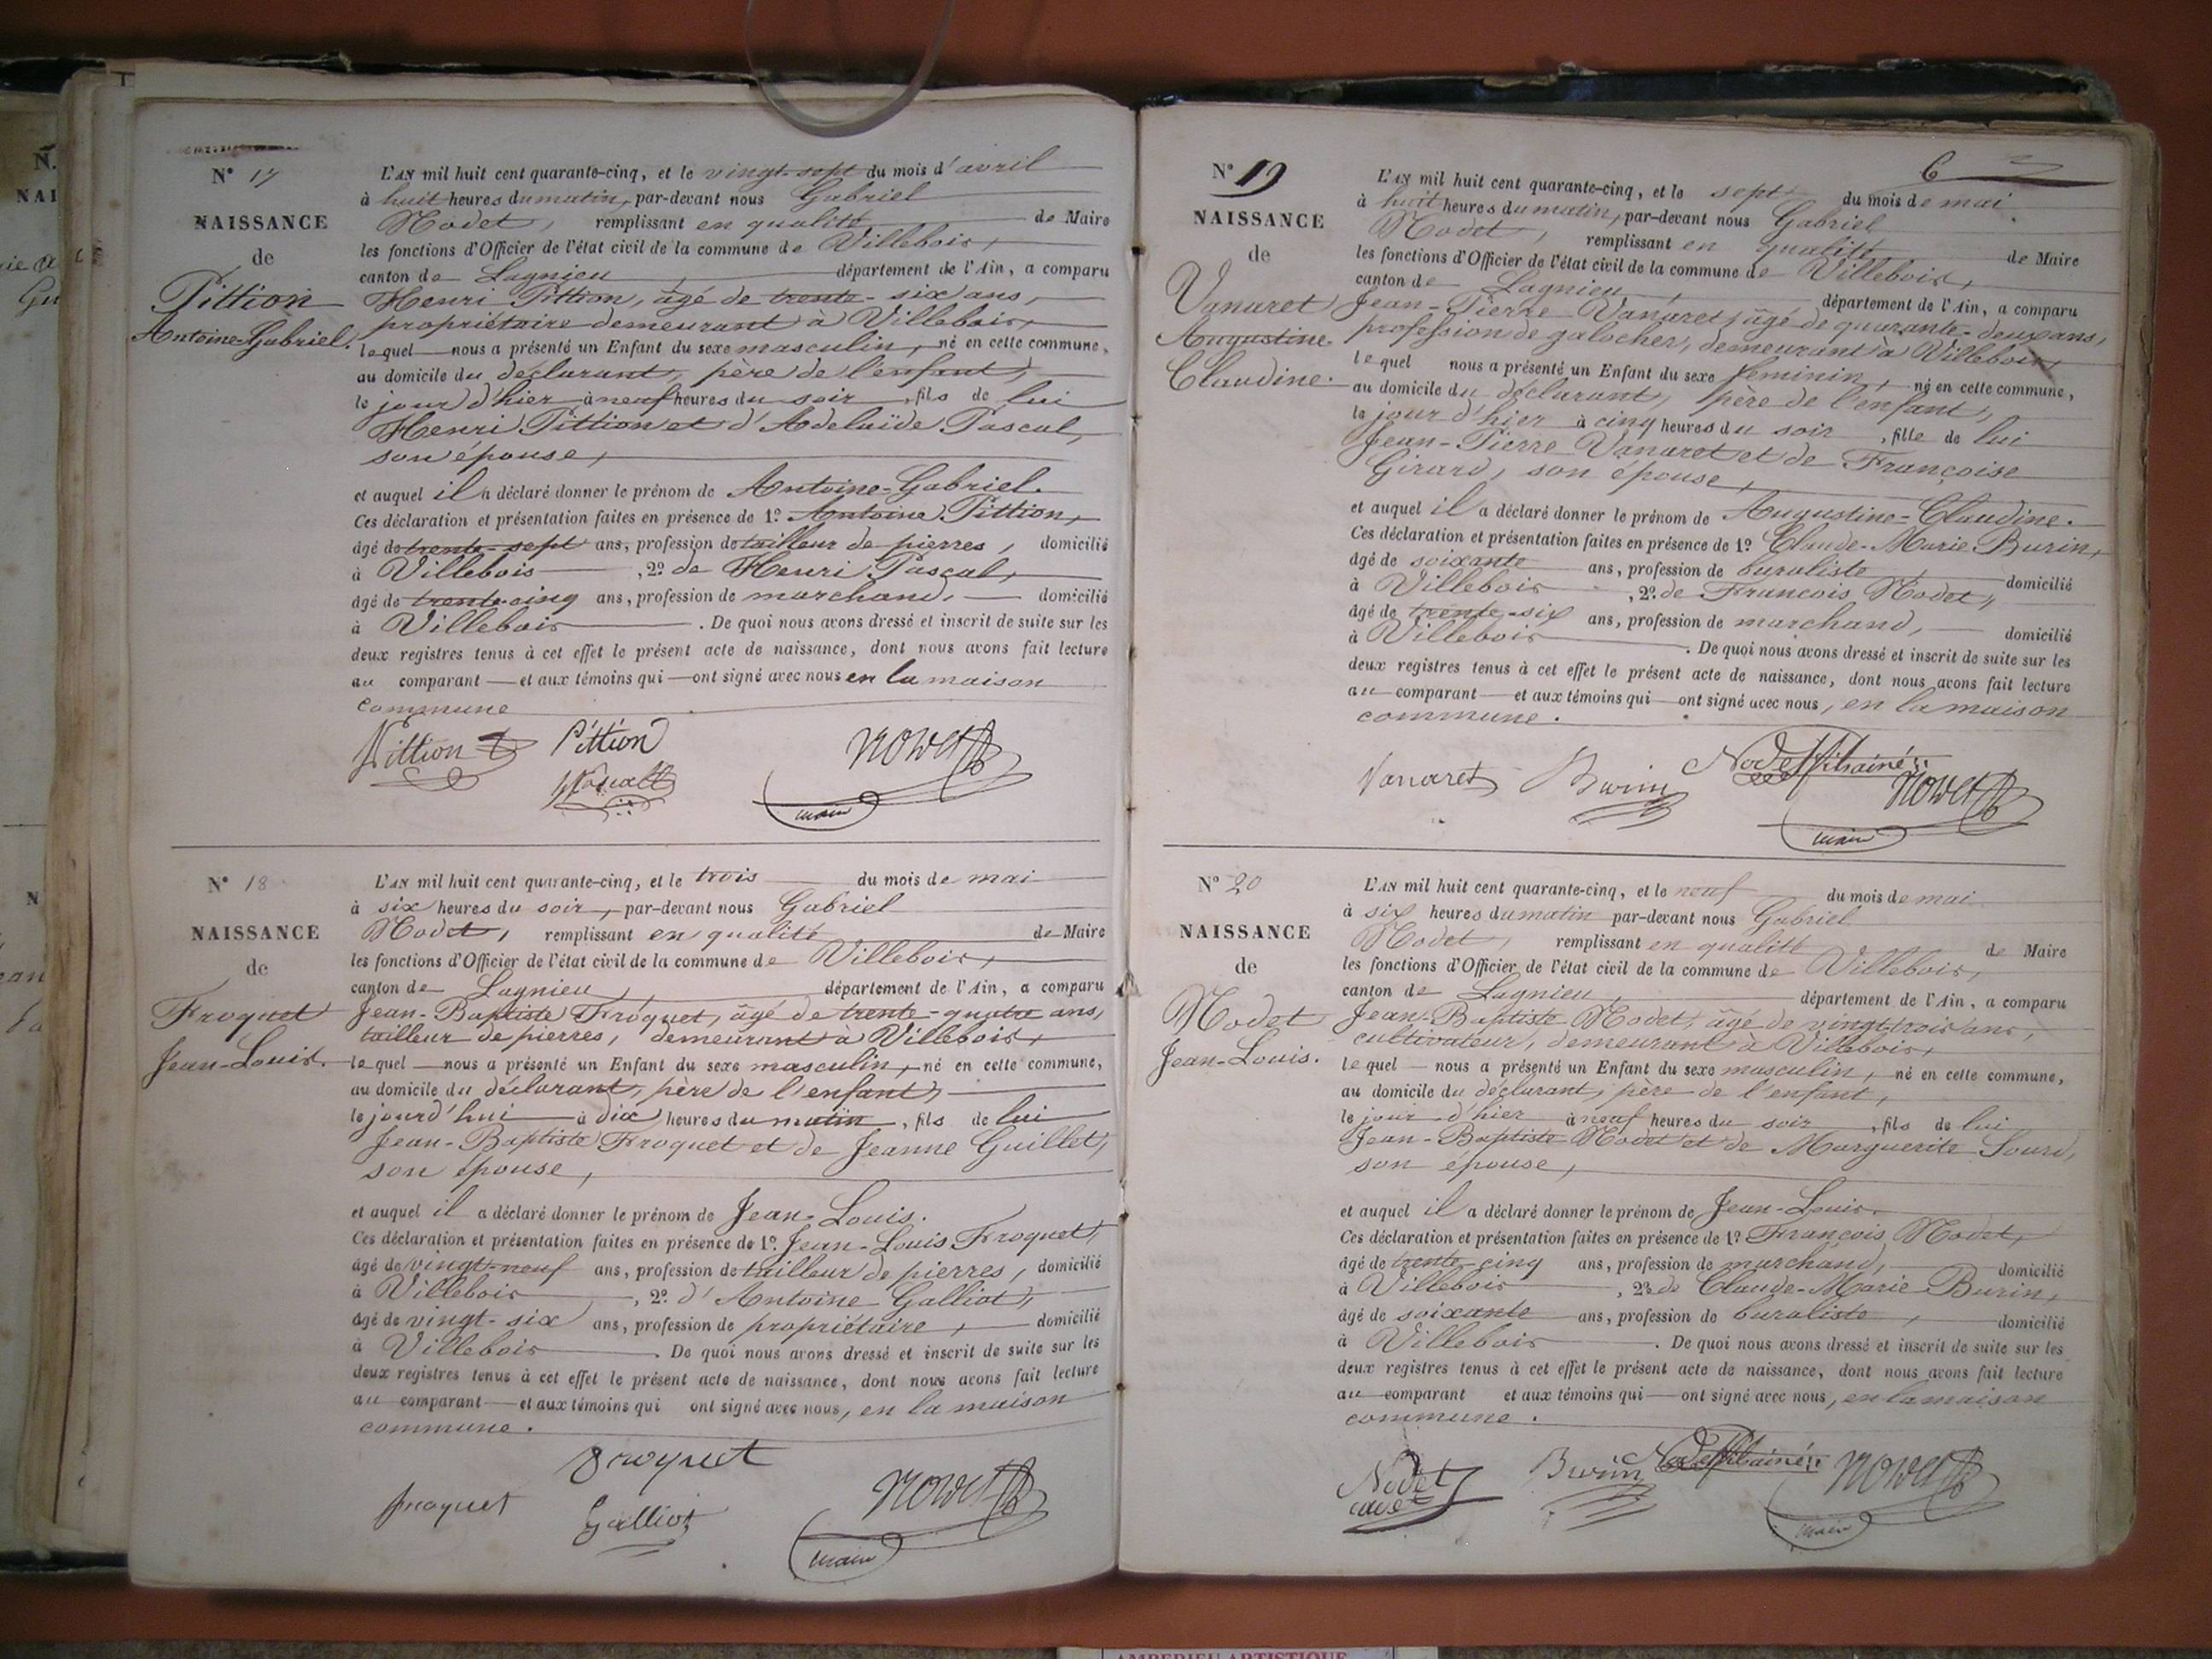 N° 17
NAISSANCE
de
Pittion
Antoine-Gabriel.
L'AN mil huit cent quarante-cinq, et le vingt-sept du mois d'avril
à huit heures du matin, par-devant nous Gabriel
Nodet, remplissant en qualité de Maire
les fonctions d'Officier de l'état civil de la commune de Villebois,
canton de Lagnieu, département de l'Ain, a comparu
Henri Pittion, âgé de trente-six ans,
propriétaire demeurant à Villebois,
lequel nous a présenté un Enfant du sexe masculin, né en cette commune,
au domicile du déclarant, père de l'enfant,
le jour d'hier à neuf heures du soir, fils de lui
Henri Pittion et d'Adelaïde Pascal,
son épouse,
et auquel il a déclaré donner le prénom de Antoine-Gabriel.
Ces déclaration et présentation faites en présence de 1º Antoine Pittion,
âgé de trente-sept ans, profession de tailleur de pierres, domicilié
à Villebois, 2º de Henri Pascal,
âgé de trente-cinq ans, profession de marchand, domicilié
à Villebois. De quoi nous avons dressé et inscrit de suite sur les
deux registres tenus à cet effet le présent acte de naissance, dont nous avons fait lecture
au comparant et aux témoins qui ont signé avec nous en la maison
commune
Pittion Pittion Nodet
H Pascal
maire
N° 18
NAISSANCE
de
Froquet
Jean-Louis.
L'AN mil huit cent quarante-cinq, et le trois du mois de mai
à six heures du soir, par-devant nous Gabriel
Nodet, remplissant en qualité de Maire
les fonctions d'Officier de l'état civil de la commune de Villebois,
canton de Lagnieu, département de l'Ain, a comparu
Jean-Baptiste Froquet, âgé de trente-quatre ans,
tailleur de pierres, demeurant à Villebois,
lequel nous a présenté un Enfant du sexe masculin, né en cette commune,
au domicile du déclarant, père de l'enfant,
le jourd'hui à dix heures du matin, fils de lui
Jean-Baptiste Froquet et de Jeanne Guillet,
son épouse,
et auquel il a déclaré donner le prénom de Jean-Louis.
Ces déclaration et présentation faites en présence de 1º Jean-Louis Froquet,
âgé de vingt-neuf ans, profession de tailleur de pierres, domicilié
à Villebois, 2º d'Antoine Galliot,
âgé de vingt-six ans, profession de propriétaire, domicilié
à Villebois. De quoi nous avons dressé et inscrit de suite sur les
deux registres tenus à cet effet le présent acte de naissance, dont nous avons fait lecture
au comparant et aux témoins qui ont signé avec nous, en la maison
commune.
Froquet
froquet Galliot Nodet
maire
6
N° 19
NAISSANCE
de
Vanaret
Augustine
Claudine.
L'AN mil huit cent quarante-cinq, et le sept du mois de mai
à huit heures du matin, par-devant nous Gabriel
Nodet, remplissant en qualité de Maire
les fonctions d'Officier de l'état civil de la commune de Villebois,
canton de Lagnieu, département de l'Ain, a comparu
Jean-Pierre Vanaret, âgé de quarante-deux ans,
profession de galocher, demeurant à Villebois,
lequel nous a présenté un Enfant du sexe feminin, né en cette commune,
au domicile du déclarant, père de l'enfant,
le jour d'hier à cinq heures du soir, fille de lui
Jean-Pierre Vanaret et de Françoise
Girard, son épouse,
et auquel il a déclaré donner le prénom de Augustine-Claudine.
Ces déclaration et présentation faites en présence de 1º Claude-Marie Burin,
âgé de soixante ans, profession de buraliste, domicilié
à Villebois, 2º de François Nodet,
âgé de trente-six ans, profession de marchand, domicilié
à Villebois. De quoi nous avons dressé et inscrit de suite sur les
deux registres tenus à cet effet le présent acte de naissance, dont nous avons fait lecture
au comparant et aux témoins qui ont signé avec nous, en la maison
commune.
Vanaret Burin Nodet fils ainé Nodet
maire
N° 20
NAISSANCE
de
Nodet
Jean-Louis.
L'AN mil huit cent quarante-cinq, et le neuf du mois de mai
à six heures du matin par-devant nous Gabriel
Nodet, remplissant en qualité de Maire
les fonctions d'Officier de l'état civil de la commune de Villebois,
canton de Lagnieu, département de l'Ain, a comparu
Jean-Baptiste Nodet, âgé de vingt-trois ans,
cultivateur, demeurant à Villebois,
lequel nous a présenté un Enfant du sexe masculin, né en cette commune,
au domicile du déclarant, père de l'enfant,
le jour d'hier à neuf heures du soir, fils de lui
Jean-Baptiste Nodet et de Marguerite Sourd,
son épouse,
et auquel il a déclaré donner le prénom de Jean-Louis.
Ces déclaration et présentation faites en présence de 1º François Nodet,
âgé de trente-cinq ans, profession de marchand, domicilié
à Villebois, 2º de Claude-Marie Burin,
âgé de soixante ans, profession de buraliste, domicilié
à Villebois. De quoi nous avons dressé et inscrit de suite sur les
deux registres tenus à cet effet le présent acte de naissance, dont nous avons fait lecture
au comparant et aux témoins qui ont signé avec nous, en la maison
commune.
Nodet Burin Nodet fils ainé Nodet
cadet
maire
AMBERIEU ARTISTIQUE